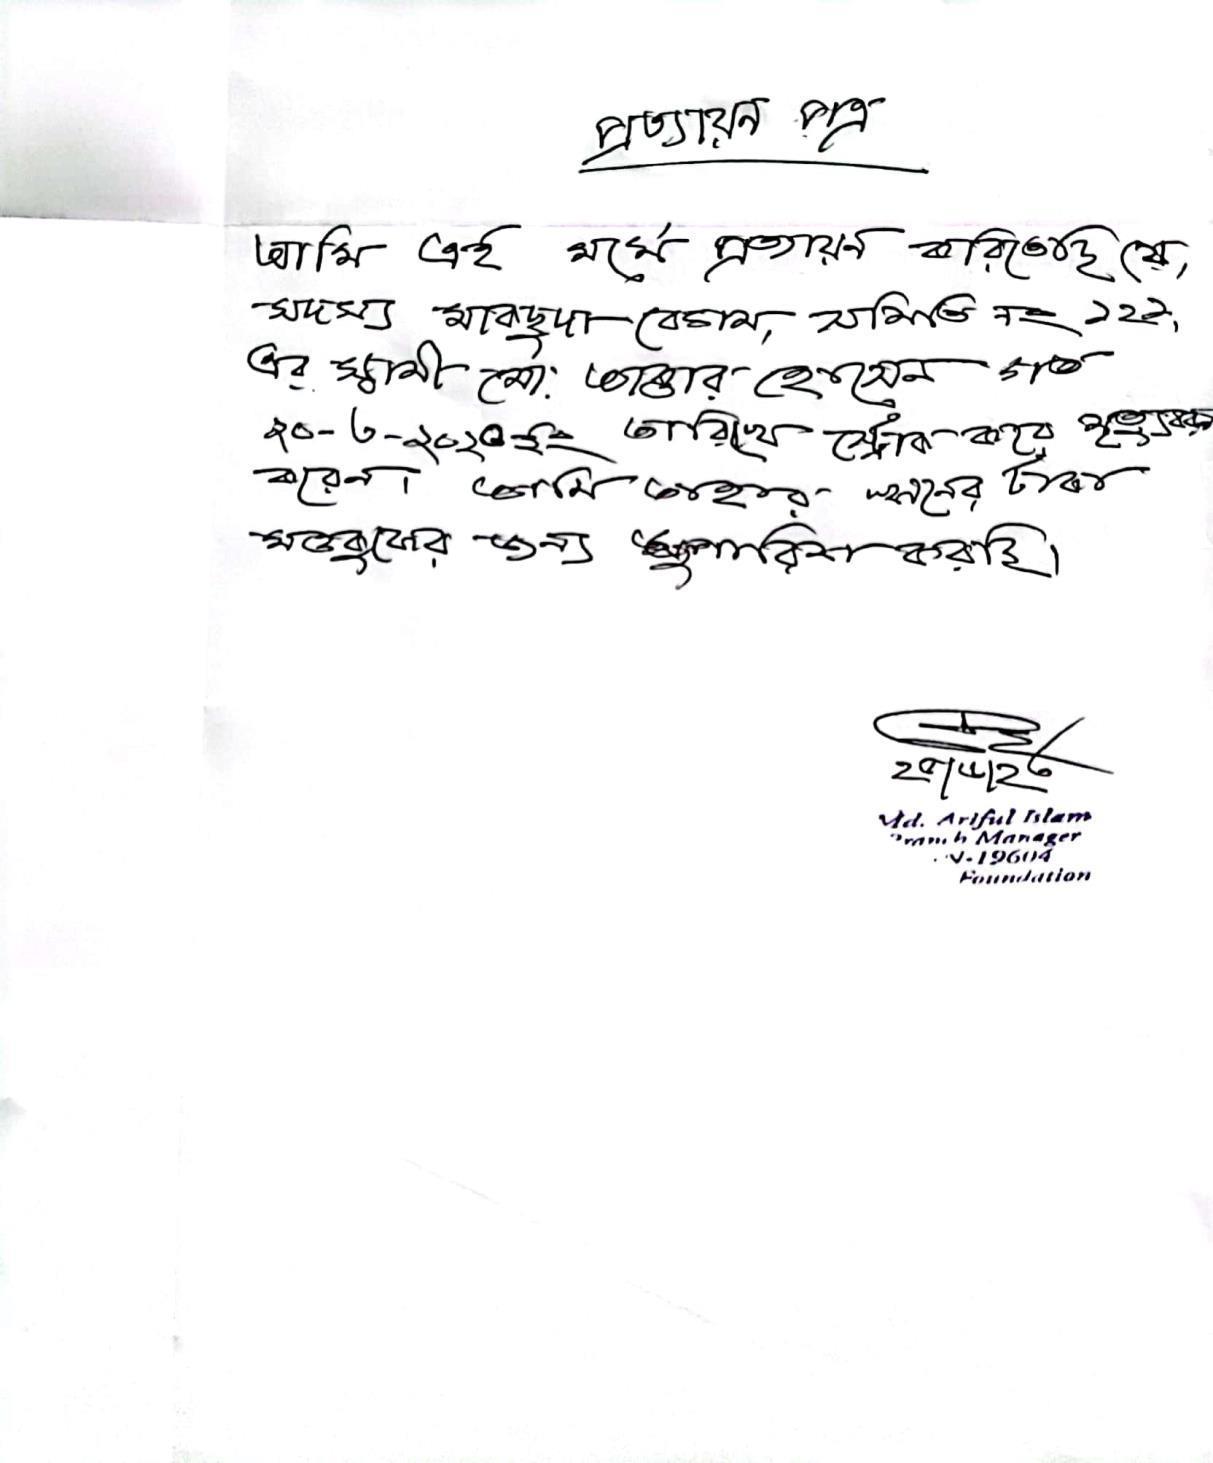 প্রত্যায়ন পত্র
আমি এই মর্মে প্রত্যায়ন করিতেছি যে,
সদস্য মাকছুদা বেগম, সমিতি নং ১২২,
এর স্বামী মো: আক্তার হোসেন গত
২০-৬-২০২৩ইং তারিখে স্ট্রোক করে মৃত্যুবরণ
করেন। আমি তাহার ঋনের টাকা
মওকুফের জন্য সুপারিশ করছি।
Md. Ariful Islam
Branch Manager
19604
Foundation